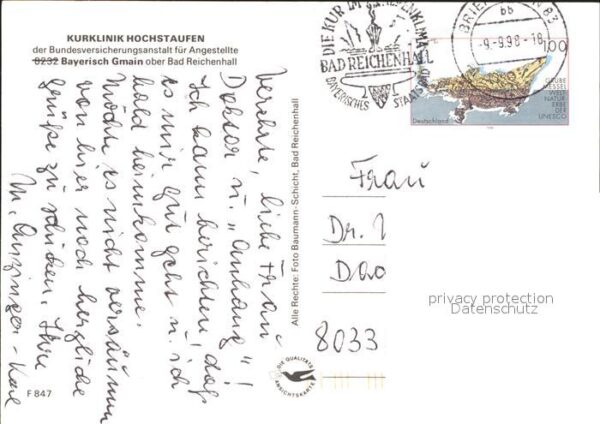 KURKLINIK HOCHSTAUFEN
der Bundesversicherungsanstalt für Angestellte
8232 Bayerisch Gmain ober Bad Reichenhall
Verehrte, liebe Frau
Doktor u. „Anhang"!
Ich kann berichten, daß
es mir gut geht u. ich
bald heimkomme.
Möchte es nicht versäumen
von hier noch herzliche
Grüße zu schicken. Ihre
M.
F 847
Alle Rechte: Foto Baumann-Schicht, Bad Reichenhall
DIE KUR IM
BAD REICHENHALL
BAYERISCHES STAATSBAD
BRIEF 83
bb
-9.-9.98-18
100
GRUBE
MESSEL
WELT
NATUR
ERBE
DER
UNESCO
Deutschland
Frau
Dr.
8033
privacy protection
Datenschutz
DIE QUALITÄTS
ANSICHTSKARTE